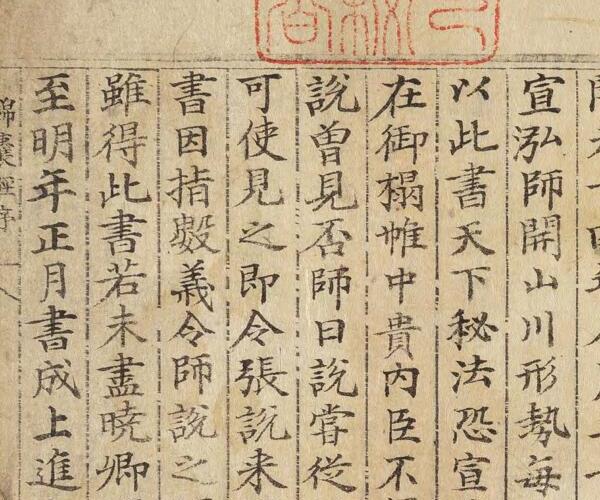 宣泓師開山川形勢每
以此書天下秘法恐宣
在御榻帷中貴內臣不
說曾見否師曰說嘗從
可使見之即令張說来
書因指數義令師說之
雖得此書若未盡曉卿
至明年正月書成上進
錦囊經序